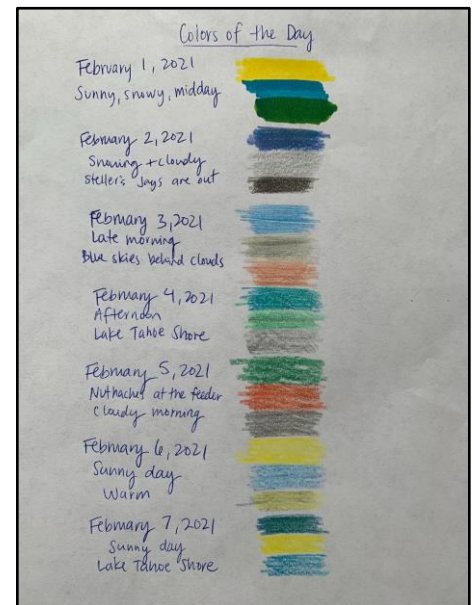 Colors of the Day
February 1, 2021
Sunny, snowy, midday
February 2, 2021
Snowing + cloudy
Steller's Jays are out
February 3, 2021
Late morning
Blue skies behind clouds
February 4, 2021
Afternoon
Lake Tahoe Shore
February 5, 2021
Nuthaches at the feeder
Cloudy morning
February 6, 2021
Sunny day
Warm
February 7, 2021
Sunny day
Lake Tahoe Shore